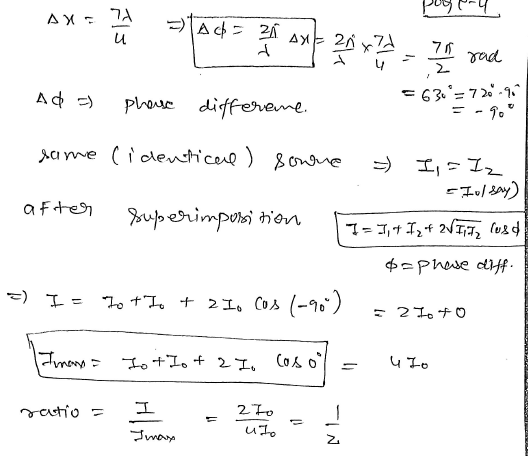 page-4
Δx = 7λ/4 ⇒ Δϕ = 2π/λ Δx = 2π/λ × 7λ/4 = 7π/2 rad
= 630° = 720°-90°
= -90°
Δϕ ⇒ phase difference.
same (identical) source ⇒ I₁ = I₂
= I₀ (say)
after superimposition I = I₁ + I₂ + 2√I₁I₂ cos ϕ
ϕ = phase diff.
⇒ I = I₀ + I₀ + 2I₀ cos (-90°) = 2I₀ + 0
Imax = I₀ + I₀ + 2I₀ cos 0° = 4I₀
ratio = I/Imax = 2I₀/4I₀ = 1/2